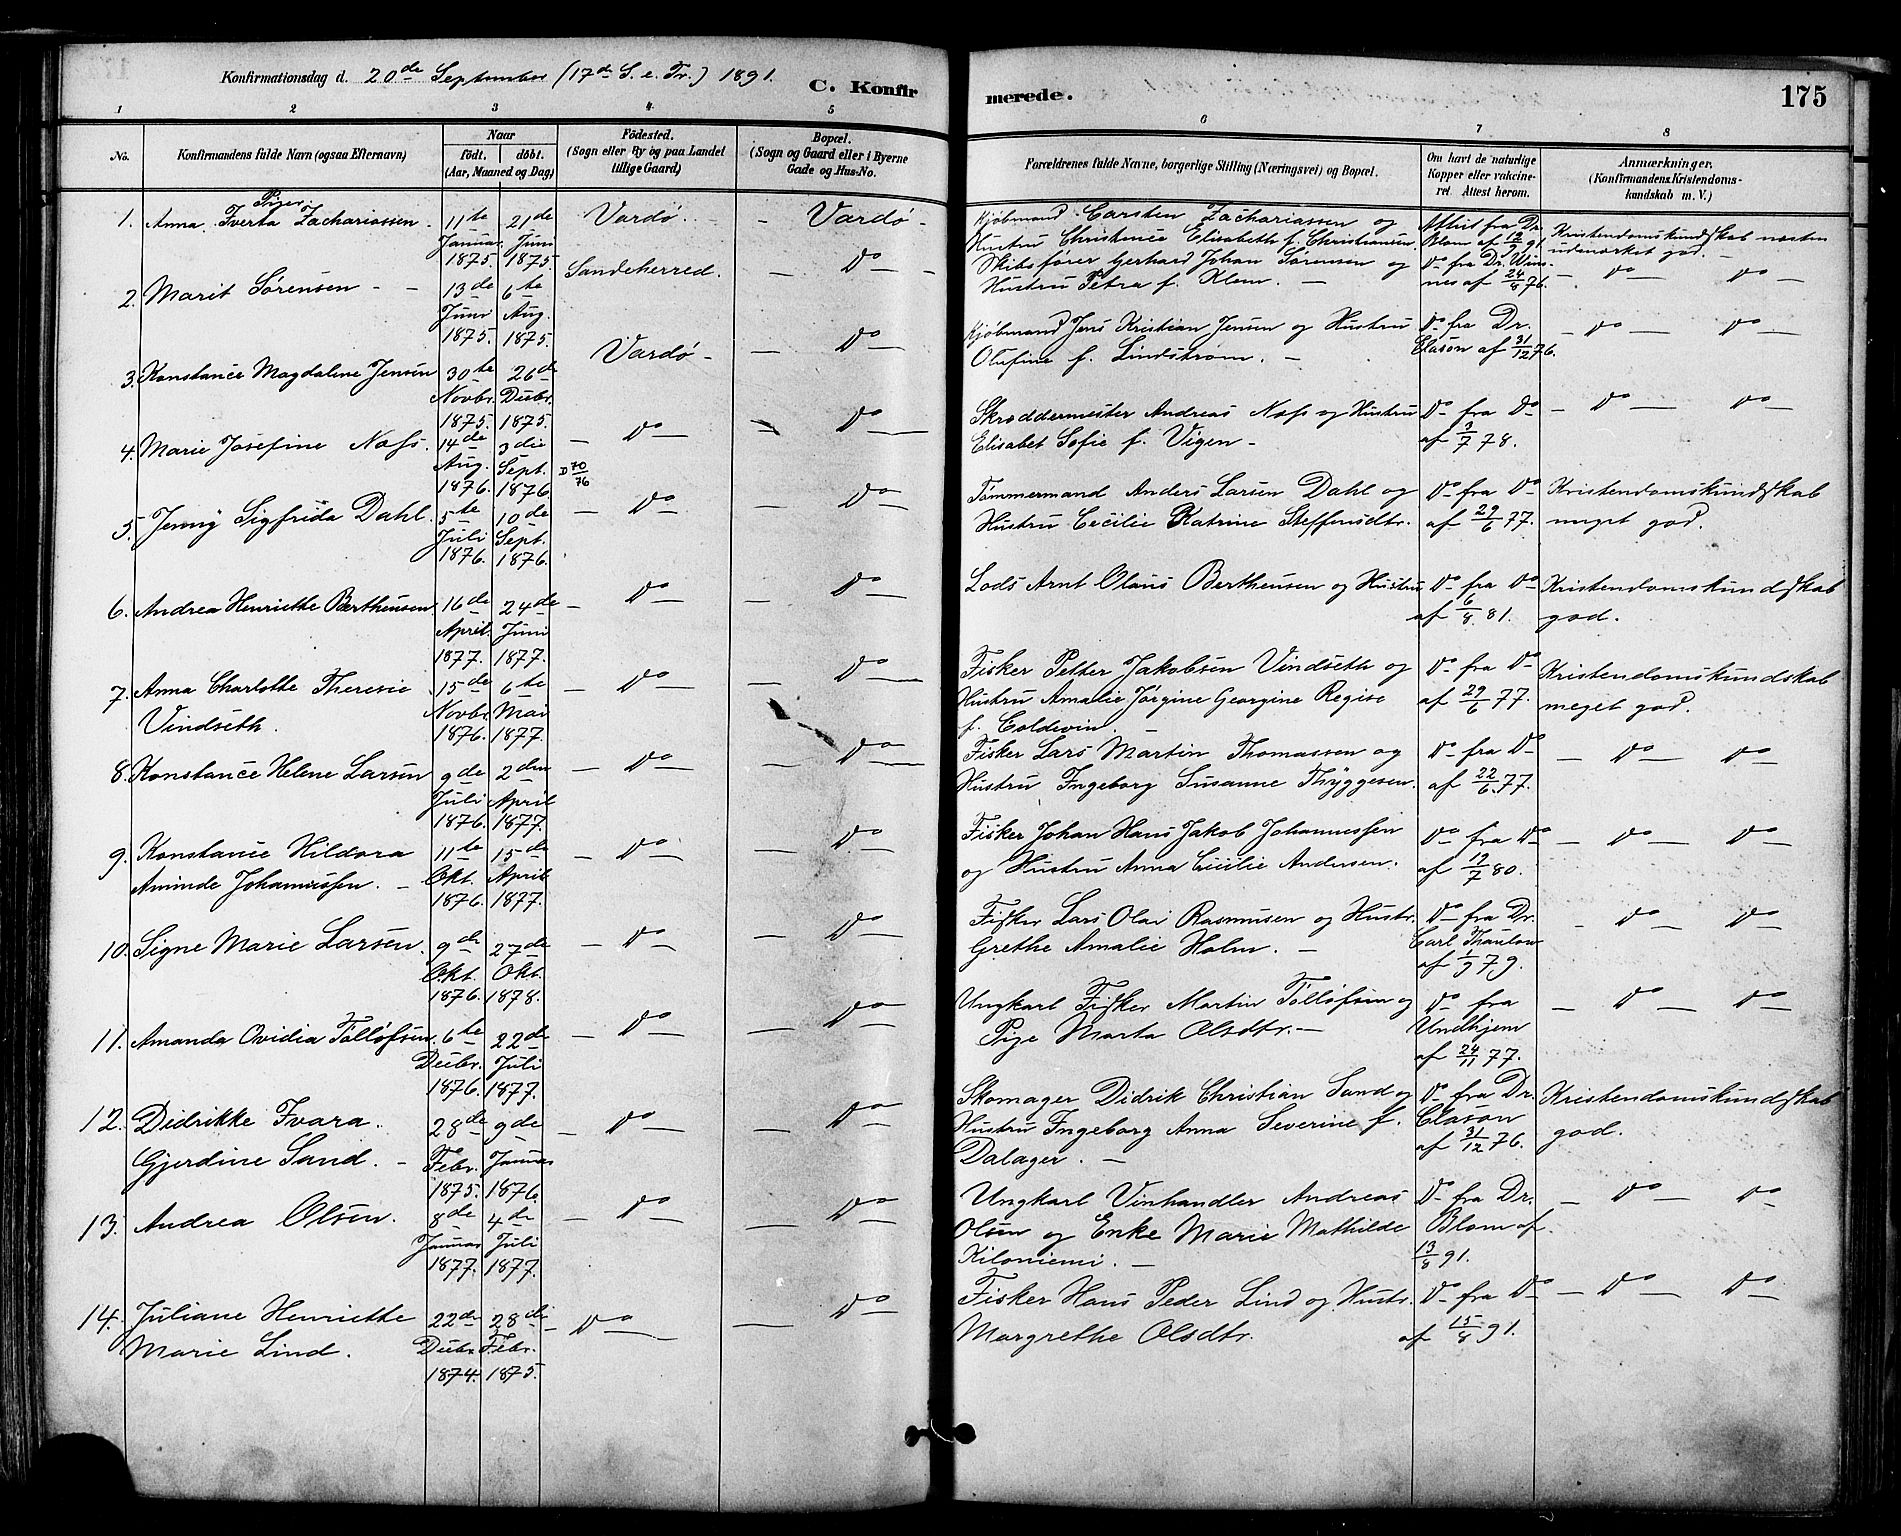 Konfirmationsdag d. 20de September (17de S. e. Tr.) 1891.
C. Konfirmerede.
175
1 2 3 4 5 6 7 8
No.
Konfirmandens fulde Navn (ogsaa Efternavn)
Naar
födt. döbt.
(Aar, Maaned og Dag)
Födested.
(Sogn eller By og paa Landet
tillige Gaard)
Bopæl.
(Sogn og Gaard eller i Byerne
Gade og Hus-No.
Forældrenes fulde Navne, borgerlige Stilling (Næringsvei) og Bopæl.
Om havt de naturlige
Kopper eller vakcineret.
Attest herom.
Anmærkninger.
(Konfirmandens Kristendomskundskab
m. V.)
Piger
1. Anna Iverta Zachariassen - 11te Januar 1875. 21de Juni 1875. Vardø - Vardø -
Kjøbmand Carsten Zachariassen og
Hustru Christence Elisabeth f. Christiansen
Attest fra Dr.
Blom af 12/9 91.
Kristendomskundskab næsten
udmærket god. -
2. Marit Sørensen - - 13de Juni 1875. 6te Aug. 1875. Sandeherred. - Do -
Skibsfører Gerhard Johan Sørensen og
Hustru Petra f. Klom. -
Do fra Dr. Winnes
af 24/8 76.
- Do - Do
3. Konstance Magdalene Jensen 30te Novbr. 1875. 26de Decbr. 1875. Vardø - - Do
Kjøbmand Jens Kristian Jensen og Hustru
Olufine f. Lindstrøm. -
Do fra Dr.
Clason af 31/12 76.
- Do - Do
4. Marie Josefine Næss. 14de Aug. 1876. 3die Sept. 1876. - Do - Do
D 70/76
Skræddermester Andreas Næss og Hustru
Elisabet Sofie f. Vigen -
Do fra Do
af 3/7 78.
- Do - Do
5. Jenny Sigfrida Dahl. 5te Juli 1876. 10de Sept. 1876. - Do - Do
Tømmermand Anders Larsen Dahl og
Hustru Cecilie Katrine Steffensdtr.
Do fra Do
af 29/6 77.
Kristendomskundskab
meget god.
6. Andrea Henriette Bertheusen 16de April. 1877. 24de Juni 1877. - Do - Do
Lods Arnt Olaus Bertheusen og Hustru
Do fra Do
af 6/8 81.
Kristendomskundskab
god.
7. Anna Charlotte Theresie
Vindseth. 15de Novbr. 1876. 6te Mai 1877. - Do - Do
Fisker Petter Jakobsen Vindseth og
Hustru Amalie Jørgine Georgine Regise
f. Coldevin. -
Do fra Do
af 29/6 77.
Kristendomskundskab
meget god.
8. Konstance Helene Larsen 9de Juli 1876. 2den April 1877. - Do - Do
Fisker Lars Martin Thomassen og
Hustru Ingeborg Susanne Thyggesen.
Do fra Do
af 22/6 77.
- Do - Do
9. Konstance Hildora
Aminde Johannessen. - 11te Okt. 1876. 15de April 1877. - Do - Do
Fisker Johan Hans Jakob Johannessen
og Hustru Anna Cecilie Andersen.
Do fra Do
af 19/7 80.
- Do - Do
10. Signe Marie Larsen. 9de Okt. 1876. 27de Okt. 1878. - Do - Do
Fisker Lars Olai Rasmusen og Hustr.
Grethe Amalie Holm. -
Do fra Dr.
Carl Thaulow
af 1/9 79.
- Do - Do
11. Amanda Ovidia Tølløfsen. 6te Decbr. 1876. 22de Juli 1877. - Do - Do
Ungkarl Fisker Martin Tølløfsen og
Pige Marta Olsdtr. -
Do fra
Undhjem
af 24/11 77.
- Do - Do
12. Didrikke Ivara
Gjerdine Sand. - 28de Febr. 1875. 9de Januar 1876. - Do - Do
Skomager Didrik Christian Sand og
Hustru Ingeborg Anna Severine f.
Dalager. -
Do fra Dr.
Clason
af 31/12 76.
Kristendomskundskab
god.
13. Andrea Olsen. 8de Januar 1877. 4de Juli 1877. - Do - Do
Ungkarl Vinhandler Andreas
Olsen og Enke Marie Mathilde
Kiloniemi. -
Do fra Dr.
Blom af
13/8 91.
- Do - Do
14. Juliane Henriette
Marie Lind. 22de Decbr. 1874. 28de Febr. 1875. - Do - Do
Fisker Hans Peder Lind og Hustr.
Margrethe Olsdtr.
Do fra Do
af 15/8 91.
- Do - Do